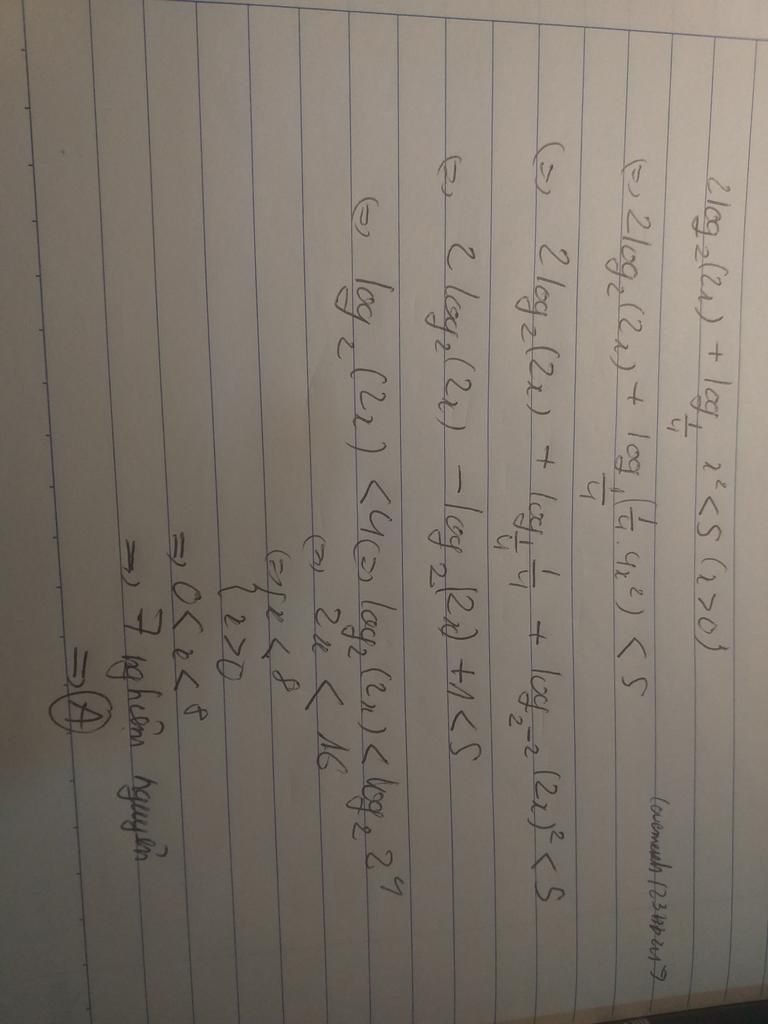 2log₂(2x) + log_{1/4} x² < 5 (x>0)
(=) 2log₂(2x) + log_{1/4}(1/4 . 4x²) < 5
(=) 2log₂(2x) + log_{1/4} 1/4 + log_{2⁻²}(2x)² < 5
(=) 2log₂(2x) - log₂(2x) + 1 < 5
(=) log₂(2x) < 4 (=) log₂(2x) < log₂ 2⁴
(=) 2x < 16
(=) { x < 8
{ x > 0
=> 0 < x < 8
=> 7 nghiệm nguyên
=> A